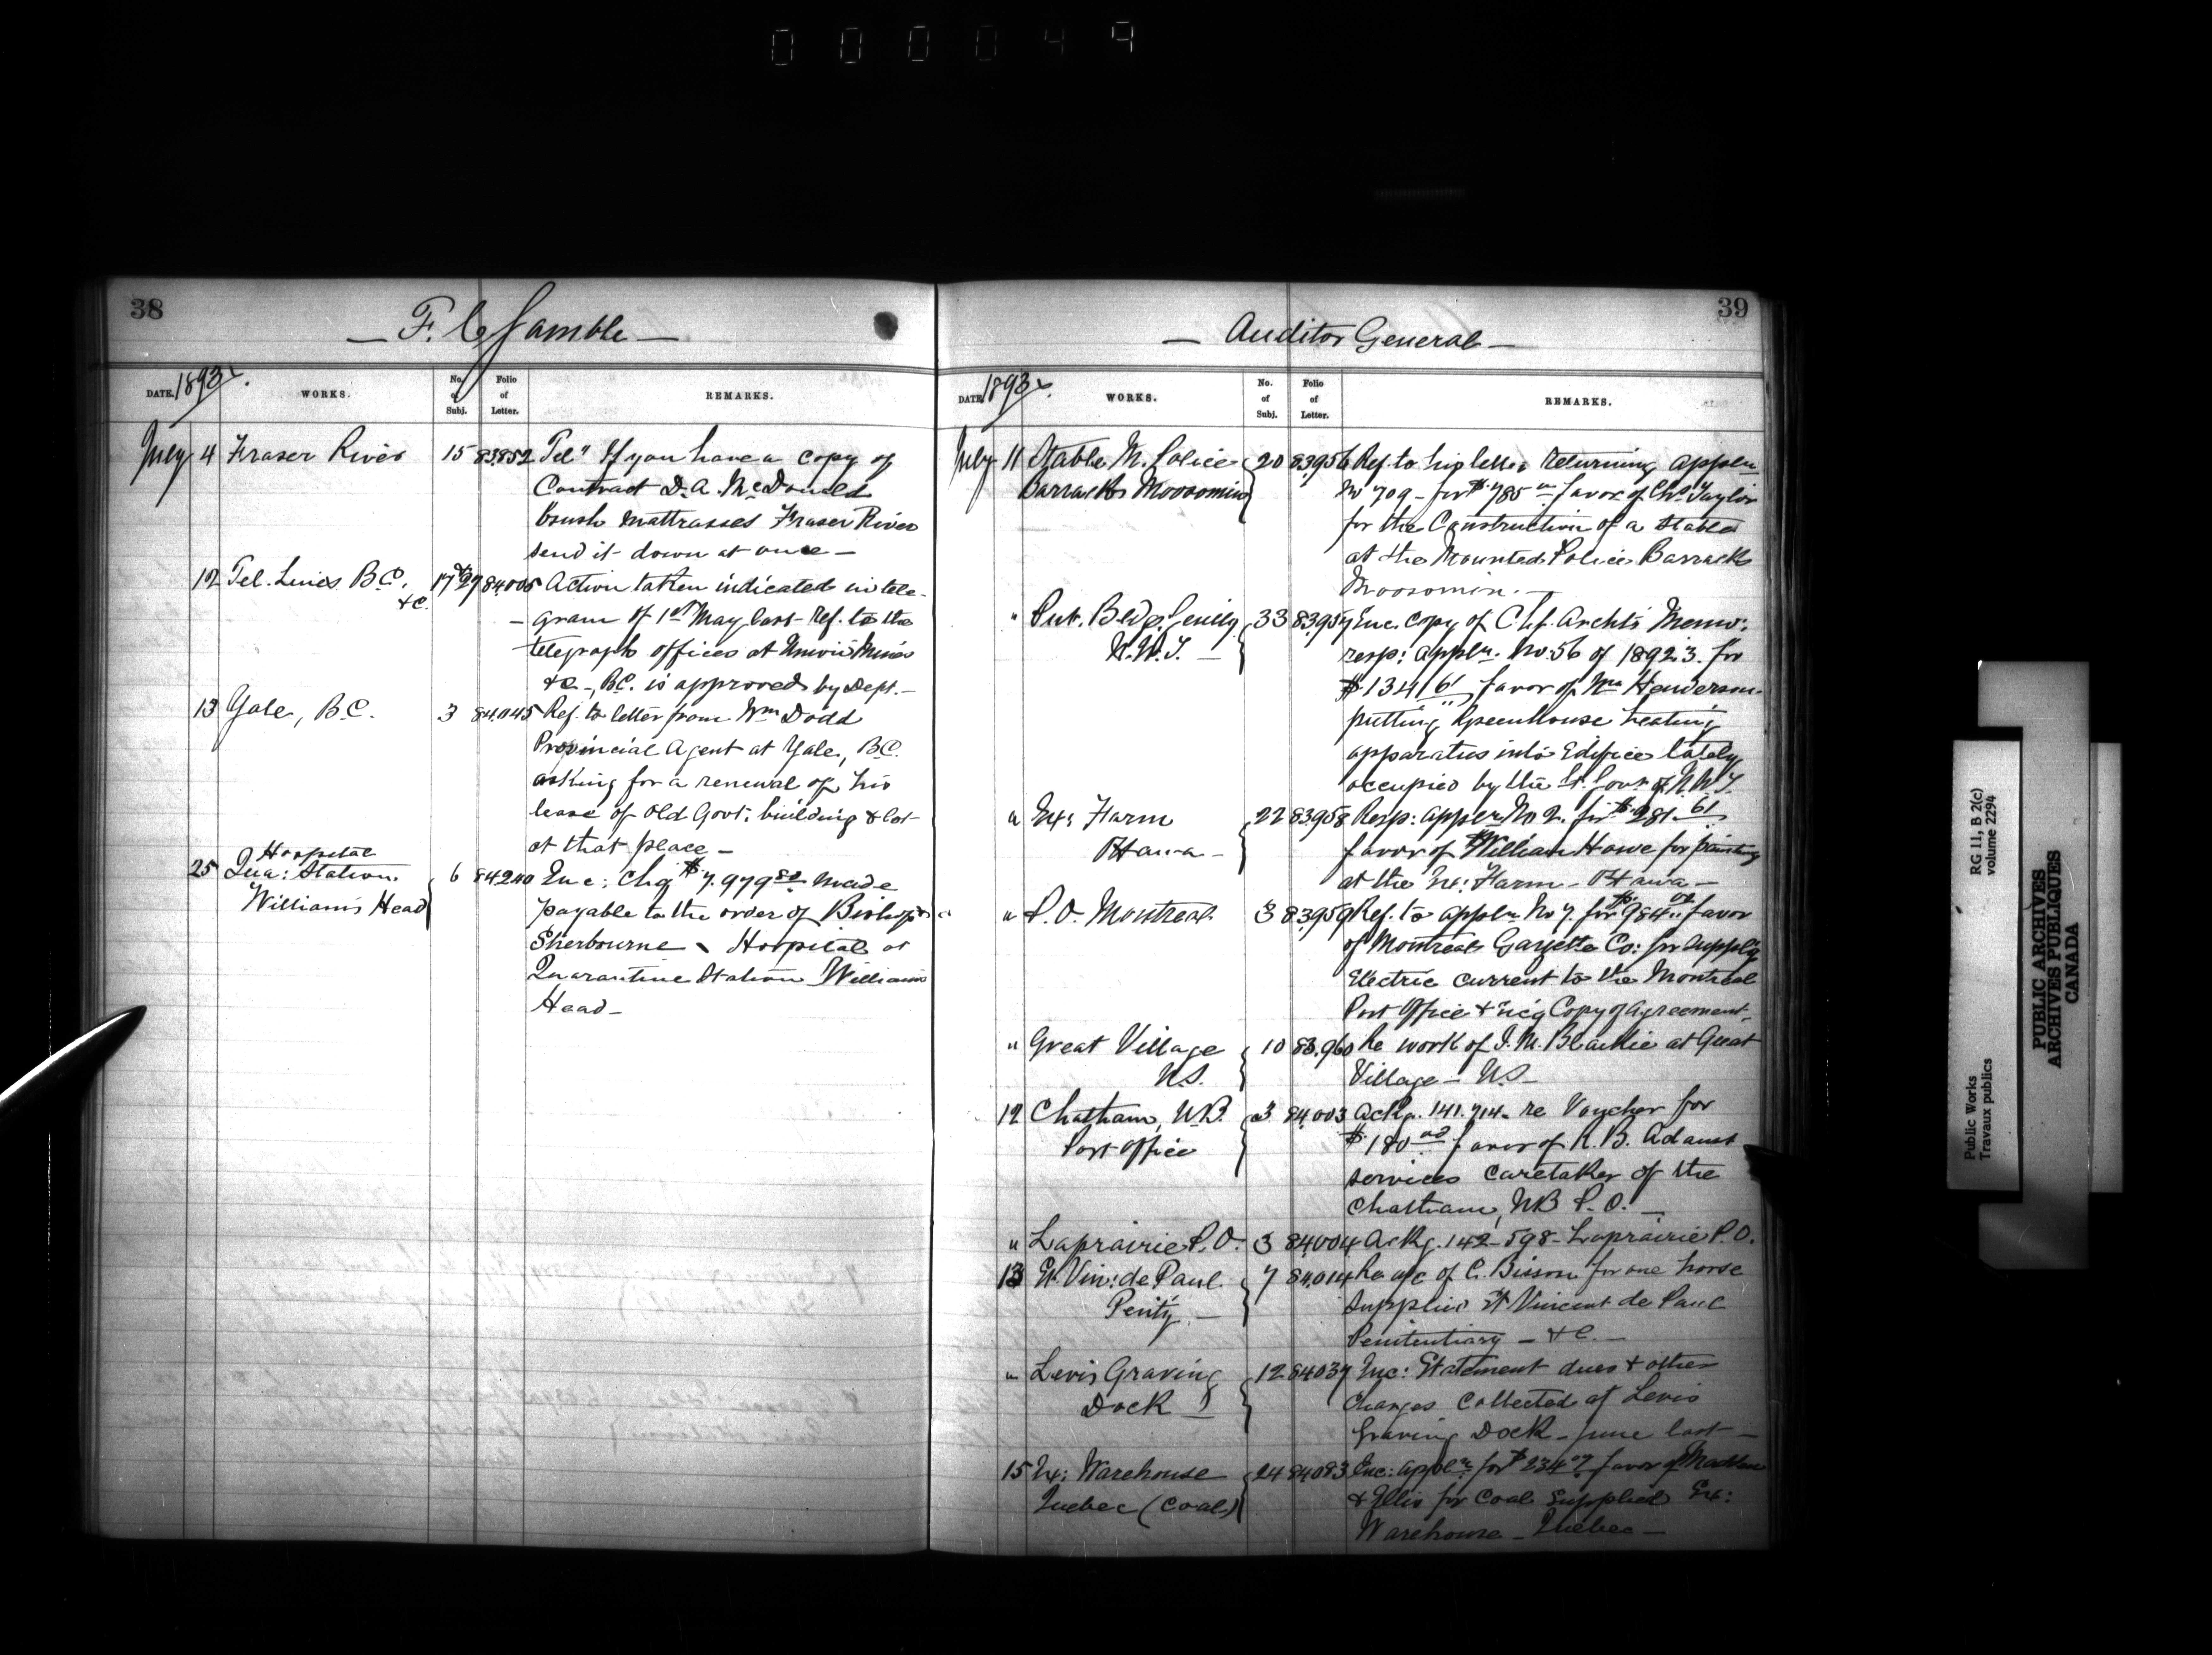 000049
38
F. C. Gamble
DATE. 1893. WORKS. No. of Subj. Folio of Letter. REMARKS.
July 4 Fraser River 15 83852 Tel" If you have a copy of
Contract D. A. McDonald
brush mattrasses Fraser River
send it down at once
12 Tel. Lines B.C. &c. 84005 Action taken indicated in tele-
gram of 1st May last - Ref. to the
telegraph offices at Union Mines
&c, B.C. is approved by Dept.
13 Yale, B.C. 3 84045 Ref. to letter from Wm Dodd
Provincial Agent at Yale, B.C.
asking for a renewal of his
lease of Old Govt: building & lot
at that place
Hospital
25 Qua: Station 6 84240 Enc: Chq $7.979 80 made
Williams Head payable to the order of Bishop
Sherbourne Hospital at
Quarantine Station Williams
Head
39
Auditor General
DATE 1893. WORKS. No. of Subj. Folio of Letter. REMARKS.
July 11 Stable M. Police 20 83956 Ref. to his letter returning appln
Barracks Moosomin No 709 - for $785 favor of Chs Taylor
for the Construction of a Stable
at the Mounted Police Barracks
Moosomin.
" Pub. Bldg. 33 83957 Enc. copy of Chf. Archt's Memo:
N.W.T. resp: appln. No: 56 of 1892.3. for
$134 61 favor of Wm Henderson
putting Greenhouse heating
apparatus into Edifice lately
occupied by the Lt. Govr of N.W.T.
" Ex: Farm 22 83958 Resp: appln No 2. for $281. 61
Ottawa favor of William Howe for painting
at the Ex: Farm - Ottawa
" P.O. Montreal 3 83959 Ref. to appln No 7. for $984 favor
of Montreal Gazette Co: for supply
Electric current to the Montreal
Post Office & Copy of Agreement
" Great Village 10 83,960 Re work of J. M. Blaikie at Great
N.S. Village - N.S.
12 Chatham, N.B. 3 84,003 Ackg. 141.714. re Voucher for
Post office $180 favor of R. B. Adams
services Caretaker of the
Chatham, NB P.O.
" Laprairie P.O. 3 84,004 Ackg. 142-598 - Laprairie P.O.
13 St. Vin: de Paul 7 84,014 Re a/c of C. Bisson for one horse
Penity. supplied St Vincent de Paul
Penitentiary - &c.
" Levis Graving 12 84037 Enc: Statement dues & other
Dock Charges Collected at Levis
Graving Dock - June last
15 Ex: Warehouse 24 84083 Enc: appln for $234 07 favor of
Quebec (Coal) & Ellis for Coal Supplied Ex:
Warehouse - Quebec
RG 11, B 2(c)
volume 2294
Public Works
Travaux publics
PUBLIC ARCHIVES
ARCHIVES PUBLIQUES
CANADA